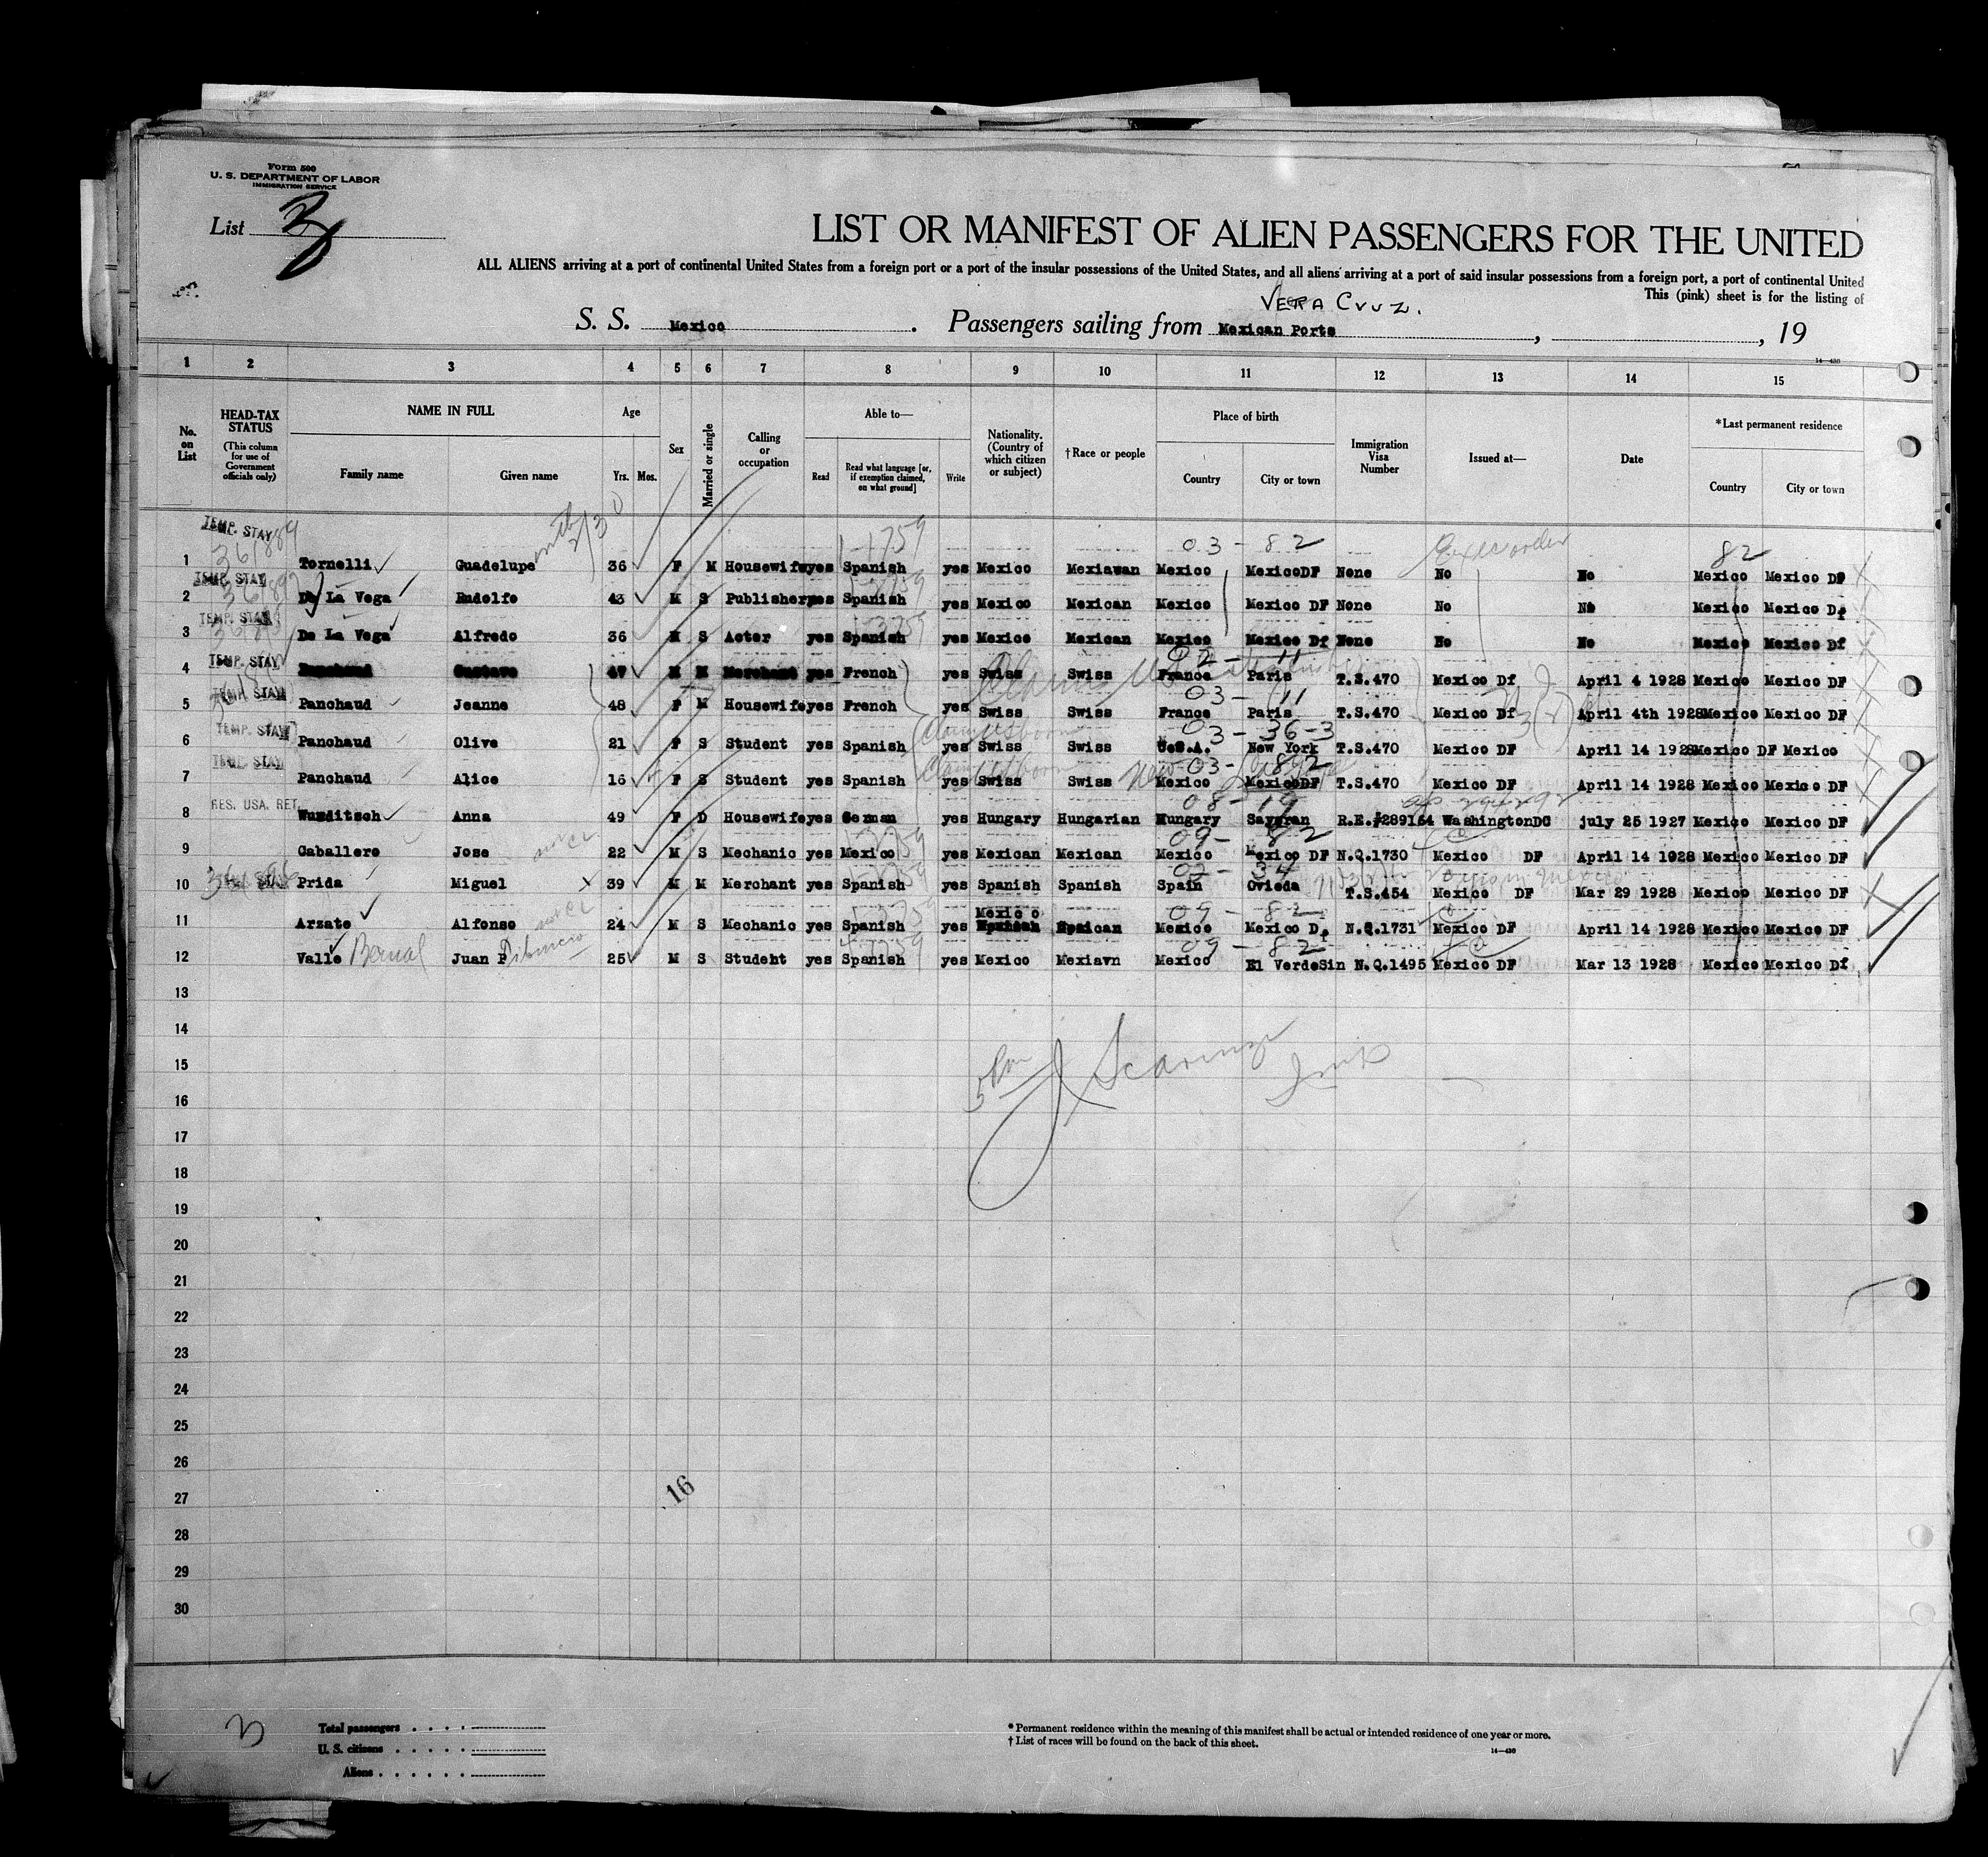 Form 500
U. S. DEPARTMENT OF LABOR
IMMIGRATION SERVICE
List 3
LIST OR MANIFEST OF ALIEN PASSENGERS FOR THE UNITED
ALL ALIENS arriving at a port of continental United States from a foreign port or a port of the insular possessions of the United States, and all aliens arriving at a port of said insular possessions from a foreign port, a port of continental United
This (pink) sheet is for the listing of
VERA Cruz.
S. S. Mexico. Passengers sailing from Mexican Ports, , 19
14-430
1 2 3 4 5 6 7 8 9 10 11 12 13 14 15
No. on List
HEAD-TAX STATUS (This column for use of Government officials only)
NAME IN FULL Family name Given name
Age Yrs. Mos.
Sex
Married or single
Calling or occupation
Able to— Read Read what language [or, if exemption claimed, on what ground] Write
Nationality. (Country of which citizen or subject)
†Race or people
Place of birth Country City or town
Immigration Visa Number
Issued at—
Date
*Last permanent residence Country City or town
TEMP. STAY 361889 03-82 82
1 Tornelli Guadelupe 36 F M Housewife yes Spanish yes Mexico Mexiawan Mexico MexicoDF None No No Mexico Mexico DF
TEMP. STAY
2 De La Vega Rudolfo 43 M S Publisher yes Spanish yes Mexico Mexican Mexico Mexico DF None No No Mexico Mexico Df
TEMP. STAY
3 De La Vega Alfredo 36 M S Actor yes Spanish yes Mexico Mexican Mexico Mexico Df None No No Mexico Mexico Df
TEMP. STAY 02-11
4 Panchaud Gustave 47 M M Merchant yes French yes Swiss Swiss France Paris T.S.470 Mexico Df April 4 1928 Mexico Mexico DF
TEMP. STAY 03-11
5 Panchaud Jeanne 48 F M Housewife yes French yes Swiss Swiss France Paris T.S.470 Mexico Df April 4th 1928 Mexico Mexico DF
TEMP. STAY 03-36-3
6 Panchaud Olive 21 F S Student yes Spanish yes Swiss Swiss U.S.A. New York T.S.470 Mexico DF April 14 1928 Mexico DF Mexico
TEMP. STAY 03-82
7 Panchaud Alice 16 F S Student yes Spanish yes Swiss Swiss Mexico MexicoDF T.S.470 Mexico DF April 14 1928 Mexico Mexico DF
RES. USA. RET. 08-19
8 Wunditsch Anna 49 F D Housewife yes German yes Hungary Hungarian Hungary R.E.#289164 WashingtonDC july 25 1927 Mexico Mexico DF
09-82
9 Caballero Jose 22 M S Mechanic yes Mexico yes Mexican Mexican Mexico Mexico DF N.Q.1730 Mexico DF April 14 1928 Mexico Mexico DF
02-34
10 Prida Miguel 39 M M Merchant yes Spanish yes Spanish Spanish Spain Ovieda T.S.454 Mexico DF Mar 29 1928 Mexico Mexico DF
09-82
11 Arzate Alfonso 24 M S Mechanic yes Spanish yes Mexico Mexico Mexico Df N.Q.1731 Mexico DF April 14 1928 Mexico Mexico DF
09-82
12 Valle Bernal Juan P 25 M S Student yes Spanish yes Mexico Mexiavn Mexico El VerdeSin N.Q.1495 Mexico DF Mar 13 1928 Mexico Mexico Df
13
14
15
16
17
18
19
20
21
22
23
24
25
26
27
28
29
30
16
3
Total passengers
U. S. citizens
Aliens
* Permanent residence within the meaning of this manifest shall be actual or intended residence of one year or more.
† List of races will be found on the back of this sheet.
14-430